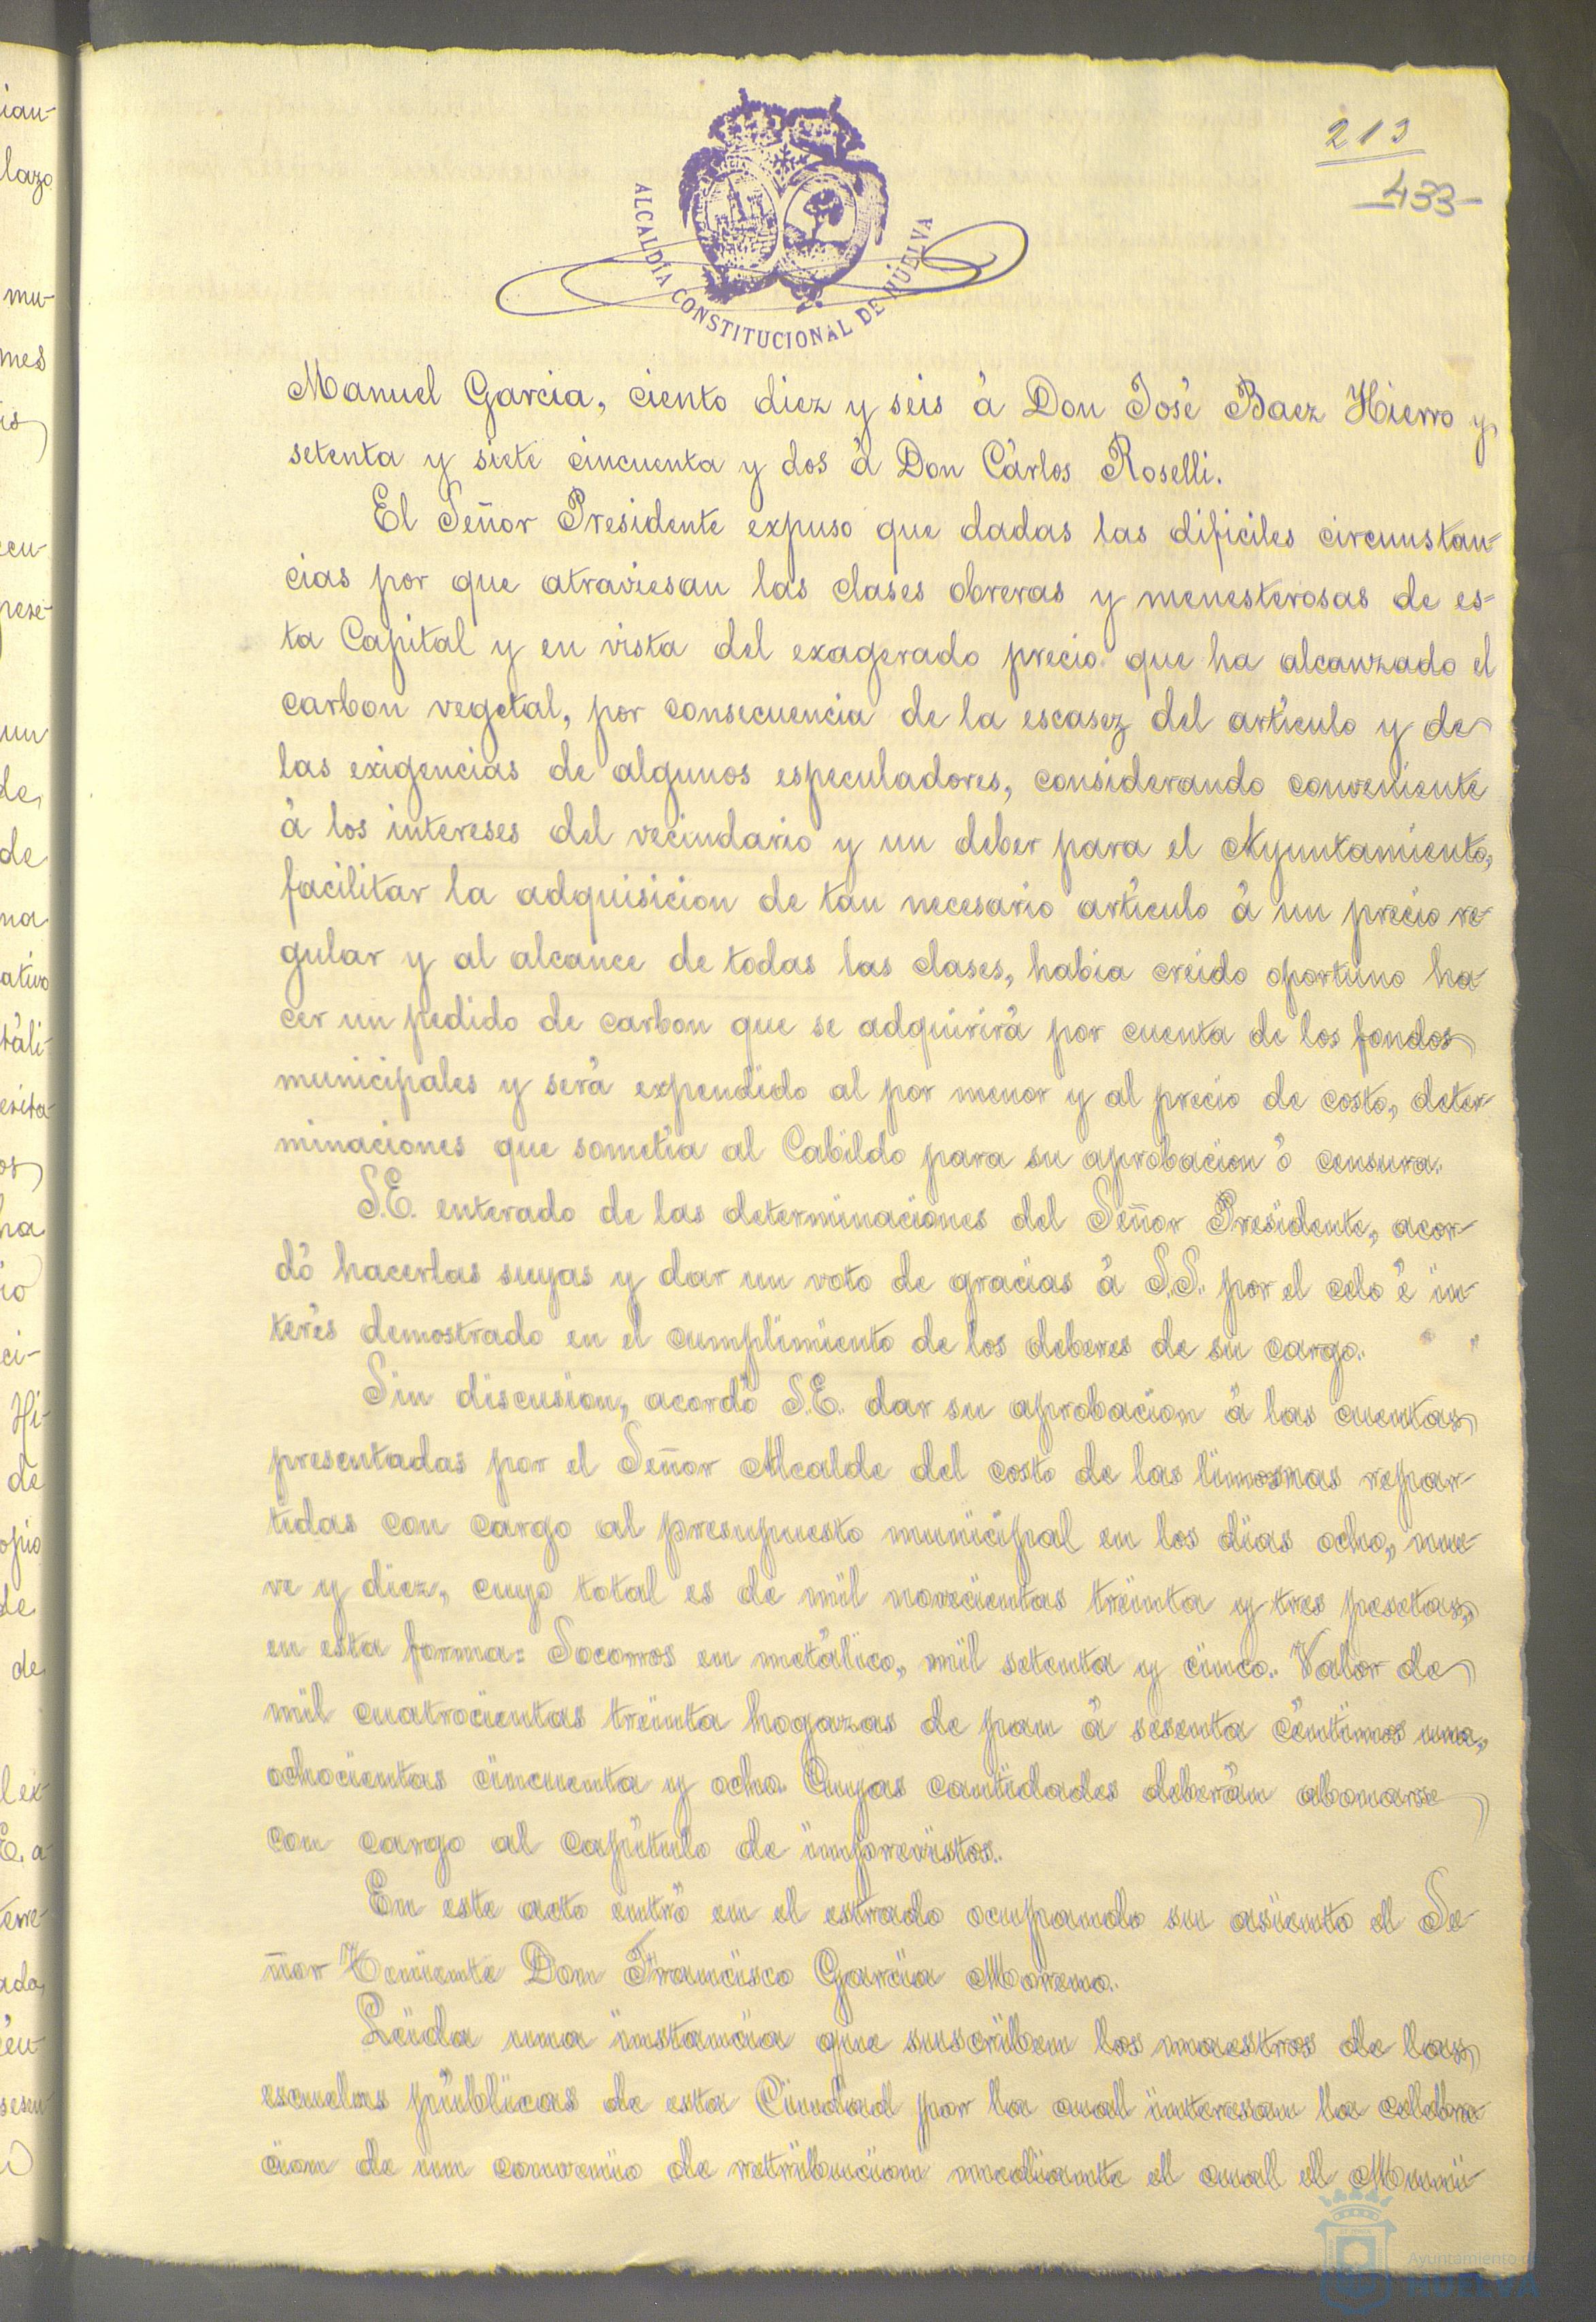 213
433
ALCALDÍA CONSTITUCIONAL DE HUELVA
Manuel Garcia, ciento diez y seis á Don José Baez Hierro y
setenta y siete cincuenta y dos á Don Cárlos Roselli.
El Señor Presidente expuso que dadas las dificiles circunstan-
cias por que atraviesan las clases obreras y menesterosas de es-
ta Capital y en vista del exagerado precio que ha alcanzado el
carbon vegetal, por consecuencia de la escasez del artículo y de
las exigencias de algunos especuladores, considerando conveniente
á los intereses del vecindario y un deber para el Ayuntamiento,
facilitar la adquisicion de tan necesario artículo á un precio re-
gular y al alcance de todas las clases, habia creido oportuno ha-
cer un pedido de carbon que se adquirirá por cuenta de los fondos
municipales y será expendido al por menor y al precio de costo, deter-
minaciones que sometía al Cabildo para su aprobacion ó censura.
S.E. enterado de las determinaciones del Señor Presidente, acor-
dó hacerlas suyas y dar un voto de gracias á S.S. por el celo é in-
terés demostrado en el cumplimiento de los deberes de su cargo.
Sin discusion, acordó S.E. dar su aprobacion á las cuentas
presentadas por el Señor Alcalde del costo de las limosnas repar-
tidas con cargo al presupuesto municipal en los dias ocho, nue-
ve y diez, cuyo total es de mil novecientas treinta y tres pesetas,
en esta forma: Socorros en metálico, mil setenta y cinco. Valor de
mil cuatrocientas treinta hogazas de pan á sesenta céntimos una,
ochocientas cincuenta y ocho. Cuyas cantidades deberán abonarse
con cargo al capítulo de imprevistos.
En este acto entró en el estrado ocupando su asiento el Se-
ñor Teniente Don Francisco Garcia Moreno.
Leida una instancia que suscriben los maestros de las
escuelas públicas de esta Ciudad por la cual interesan la celebra-
cion de un convenio de retribucion mediante el cual el Muni-
Ayuntamiento de
HUELVA